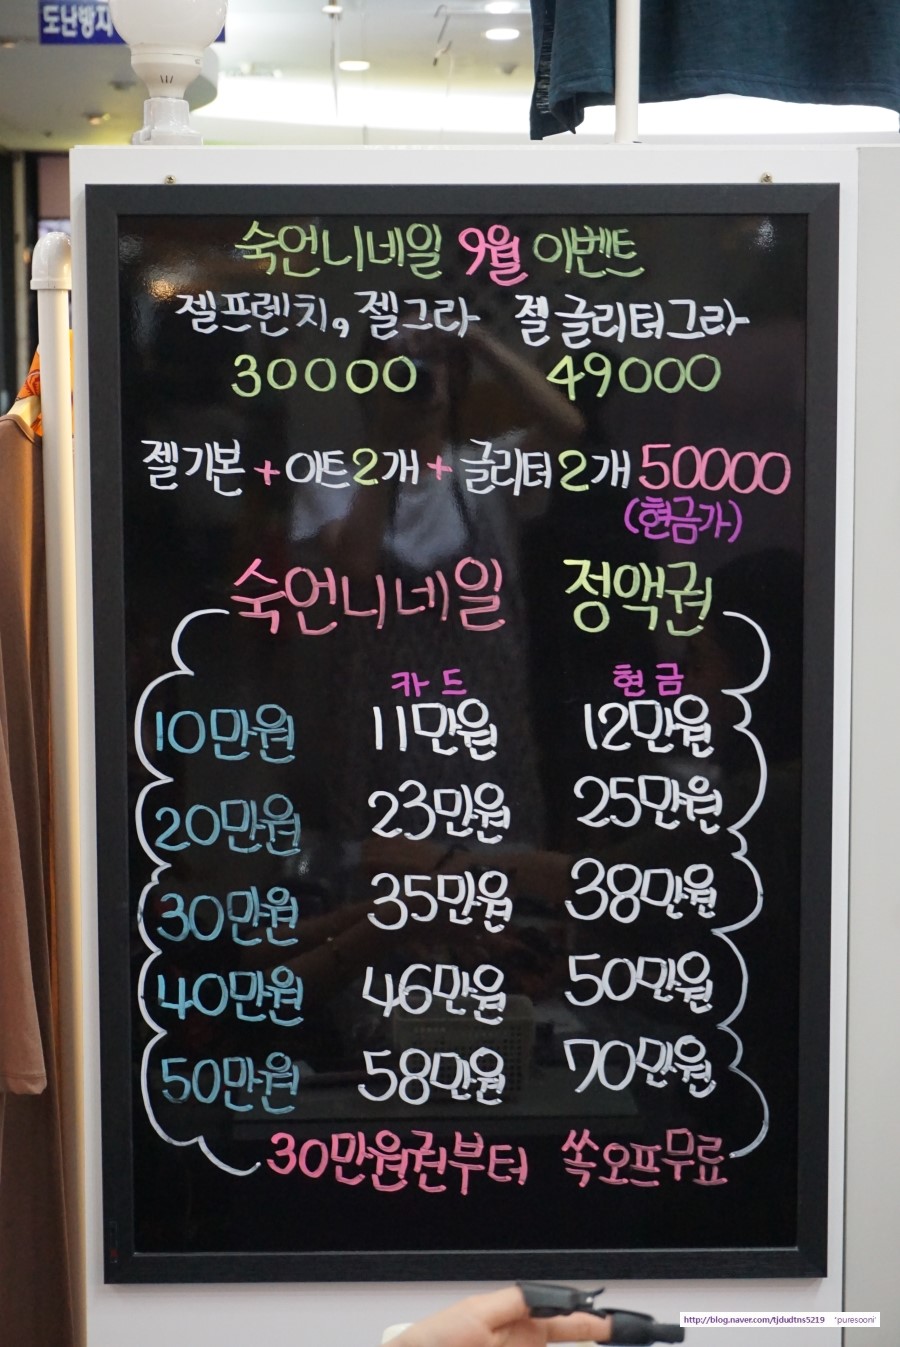 도난방지
숙언니네일 9월 이벤트
젤프렌치, 젤그라 젤글리터그라
30000 49000
젤기본 + 아트2개 + 글리터2개 50000
(현금가)
숙언니네일 정액권
카드 현금
10만원 11만원 12만원
20만원 23만원 25만원
30만원 35만원 38만원
40만원 46만원 50만원
50만원 58만원 70만원
30만원권부터 쏙오프무료
http://blog.naver.com/tjdudtns5219 'puresooni'